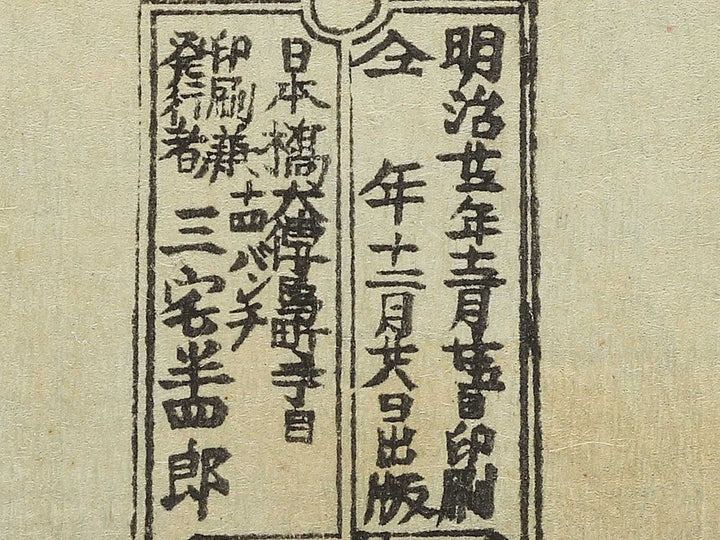 明治廿五年十二月廿五日印刷
仝年十二月廿八日出版
日本橋大傳馬町丁目
十四バンチ
印刷兼
発行者
三宅半四郎